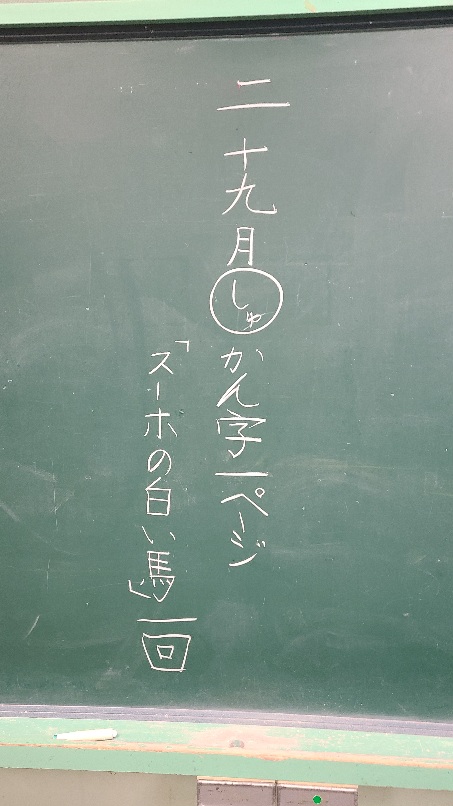 二 十九 月 しゅ かん字一ページ
「スーホの白い馬」一回